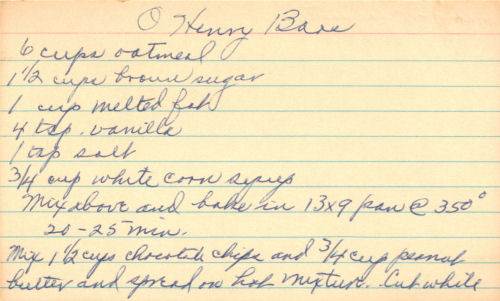 O Henry Bars
6 cups oatmeal
1 1/2 cups brown sugar
1 cup melted fat
4 tsp. vanilla
1 tsp salt
3/4 cup white corn syrup
Mix above and bake in 13x9 pan @ 350°
20-25 min.
Mix 1 1/2 cups chocolate chips and 3/4 cup peanut
butter and spread on hot mixture. Cut while